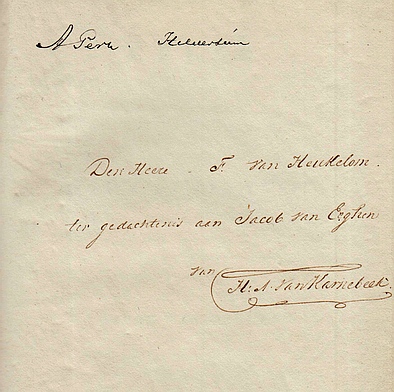 A Perk. Hilversum
Den Heere F. van Heukelom.
ter gedachtenis aan Jacob van Eeghen
van
H: A. van Karnebeek.